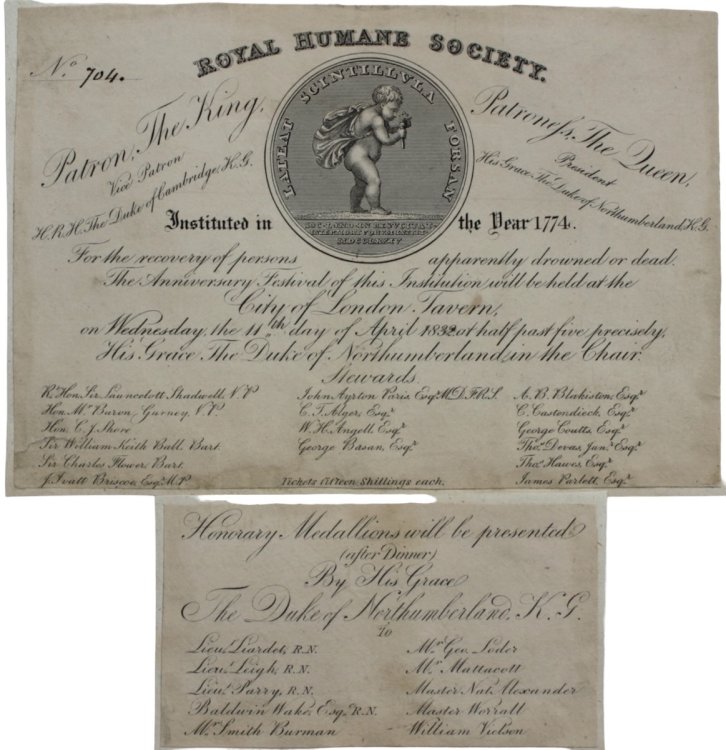 ROYAL HUMANE SOCIETY.
No. 704.
LATEAT SCINTILLVLA FORSAN
Patron, The King,
Patroness, The Queen,
Vice Patron
President
H.R.H. The Duke of Cambridge, K.G.
His Grace The Duke of Northumberland, K.G.
Instituted in the Year 1774.
For the recovery of persons apparently drowned or dead.
The Anniversary Festival of this Institution, will be held at the
City of London Tavern,
on Wednesday, the 11th day of April 1832 at half past five precisely,
His Grace The Duke of Northumberland, in the Chair.
Stewards.
Rt. Hon. Sir Launcelott Shadwell, V.P.
Hon. Mr. Baron Gurney, V.P.
Hon. C. J. Shore
Sir William Keith Ball, Bart.
Sir Charles Flower, Bart.
J. Ivatt Briscoe, Esqr. M.P.
John Ayrton Paris, Esqr. M.D.F.R.S.
C. T. Alger, Esqr.
W. H. Angell, Esqr.
George Basan, Esqr.
A. B. Blakiston, Esqr.
C. Castendieck, Esqr.
George Coutts, Esqr.
Thos. Devas, Junr. Esqr.
Thos. Hawes, Esqr.
James Parlett, Esqr.
Tickets Fifteen Shillings each.
Honorary Medallions will be presented
(after Dinner)
By His Grace
The Duke of Northumberland, K.G.
To
Lieut. Liardet, R.N.
Lieut. Leigh, R.N.
Lieut. Parry, R.N.
Baldwin Wake, Esqr. R.N.
Mr. Smith Burman
Mr. Geo. Loder
Mr. Mattacott
Master Natl. Alexander
Master Worralt
William Vielson